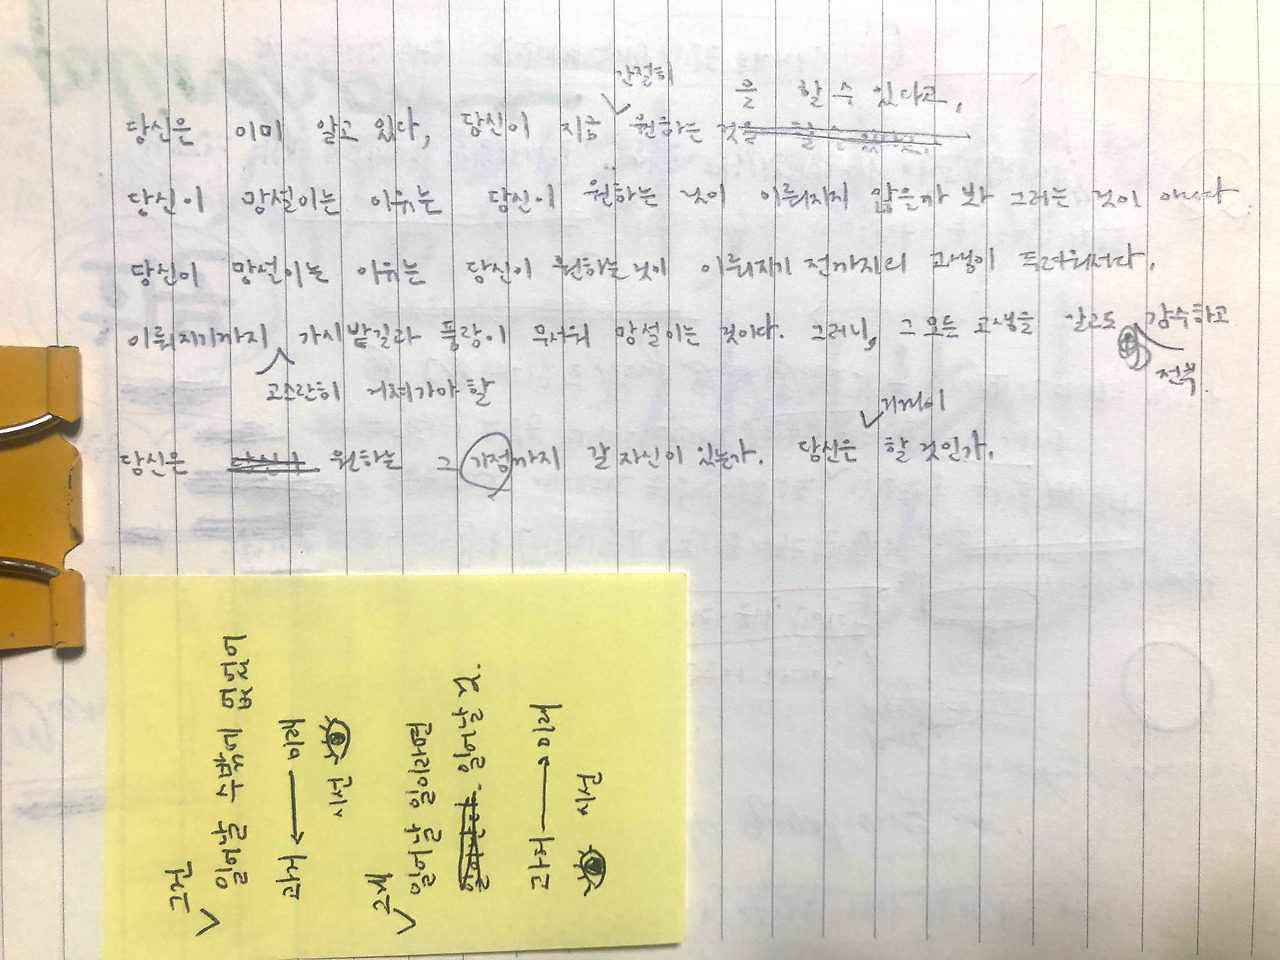 간절히
을 할 수 있다고,
당신은 이미 알고 있다, 당신이 지금 원하는 것을 할 수 있다고,
당신이 망설이는 이유는 당신이 원하는 것이 이뤄지지 않을까 봐 그러는 것이 아니다
당신이 망설이는 이유는 당신이 원하는 것이 이뤄지기 전까지의 고생이 두려워서다.
이뤄지기까지 가시밭길과 풍랑이 무서워 망설이는 것이다. 그러니, 그 모든 고생을 알고도 감수하고
고스란히 거쳐가야 할
전부
기꺼이
당신은 당신이 원하는 그 지점까지 갈 자신이 있는가. 당신은 할 것인가.
그건
일어날 수밖에 없었어
과거 미래
시선
그게
일어날 일이라면
일어날 것.
과거 미래
시선